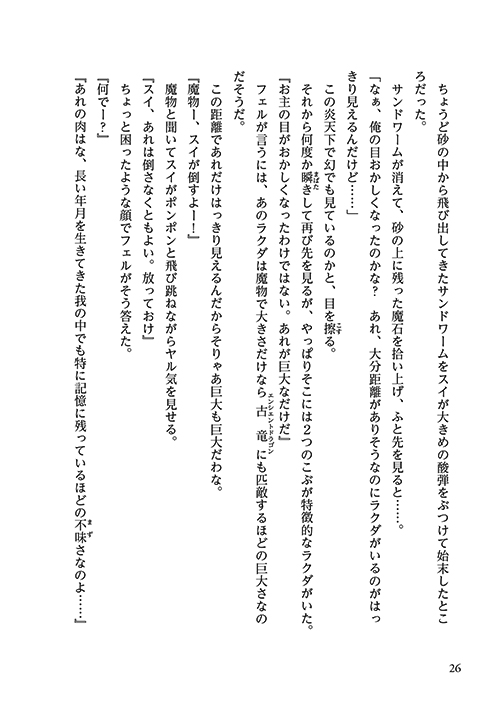 ちょうど砂の中から飛び出してきたサンドワームをスイが大きめの酸弾をぶつけて始末したとこ
ろだった。
サンドワームが消えて、砂の上に残った魔石を拾い上げ、ふと先を見ると……。
「なぁ、俺の目おかしくなったのかな？　あれ、大分距離がありそうなのにラクダがいるのがはっ
きり見えるんだけど……」
この炎天下で幻でも見ているのかと、目を擦る。
それから何度か瞬きして再び先を見るが、やっぱりそこには２つのこぶが特徴的なラクダがいた。
『お主の目がおかしくなったわけではない。あれが巨大なだけだ』
フェルが言うには、あのラクダは魔物で大きさだけなら古竜にも匹敵するほどの巨大さなの
だそうだ。
この距離であれだけはっきり見えるんだからそりゃあ巨大も巨大だわな。
『魔物ー、スイが倒すよー！』
魔物と聞いてスイがポンポンと飛び跳ねながらヤル気を見せる。
『スイ、あれは倒さなくともよい。放っておけ』
ちょっと困ったような顔でフェルがそう答えた。
『何でー？』
『あれの肉はな、長い年月を生きてきた我の中でも特に記憶に残っているほどの不味さなのよ……』
26